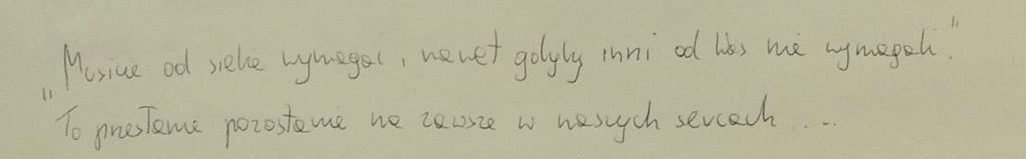 „Musicie od siebie wymagać, nawet gdyby inni od Was nie wymagali."
To przesłanie pozostanie na zawsze w naszych sercach ...